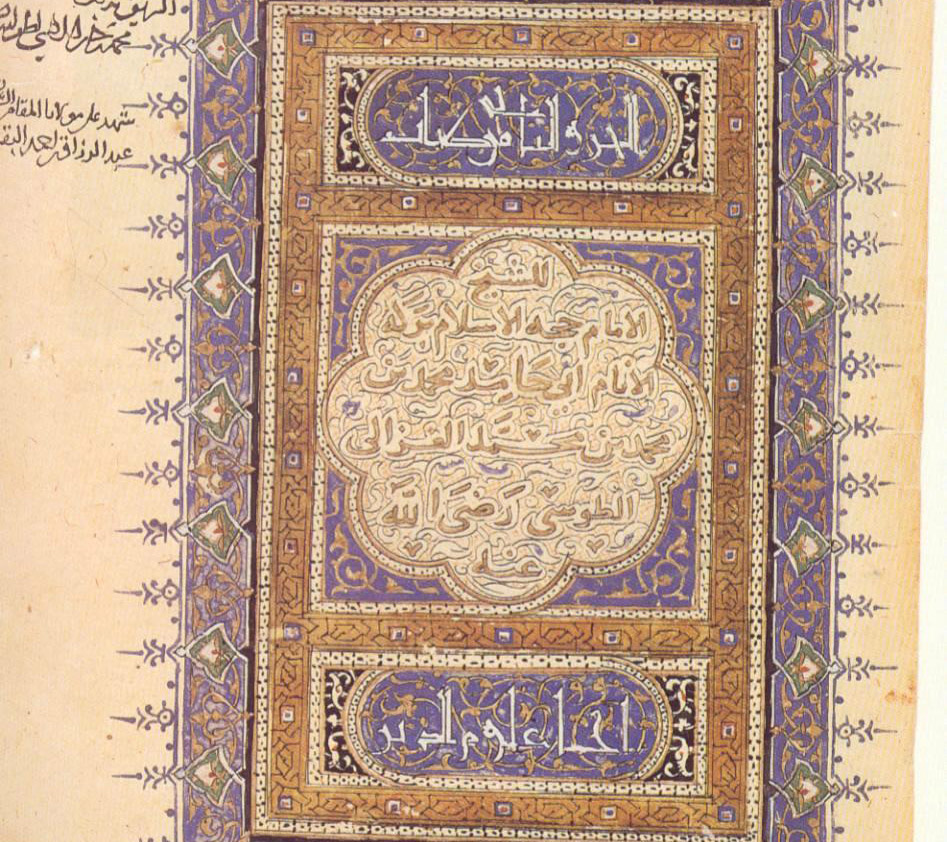 محمد
شهد على مولانا المقام
عبد الرزاق
الجزو الثاني من كتاب
للشيخ
الامام حجه الاسلام بركه
الانام ابي حامد محمد بن
محمد بن محمد الغزالي
الطوسي رضي الله
عنه
احياء علوم الدين